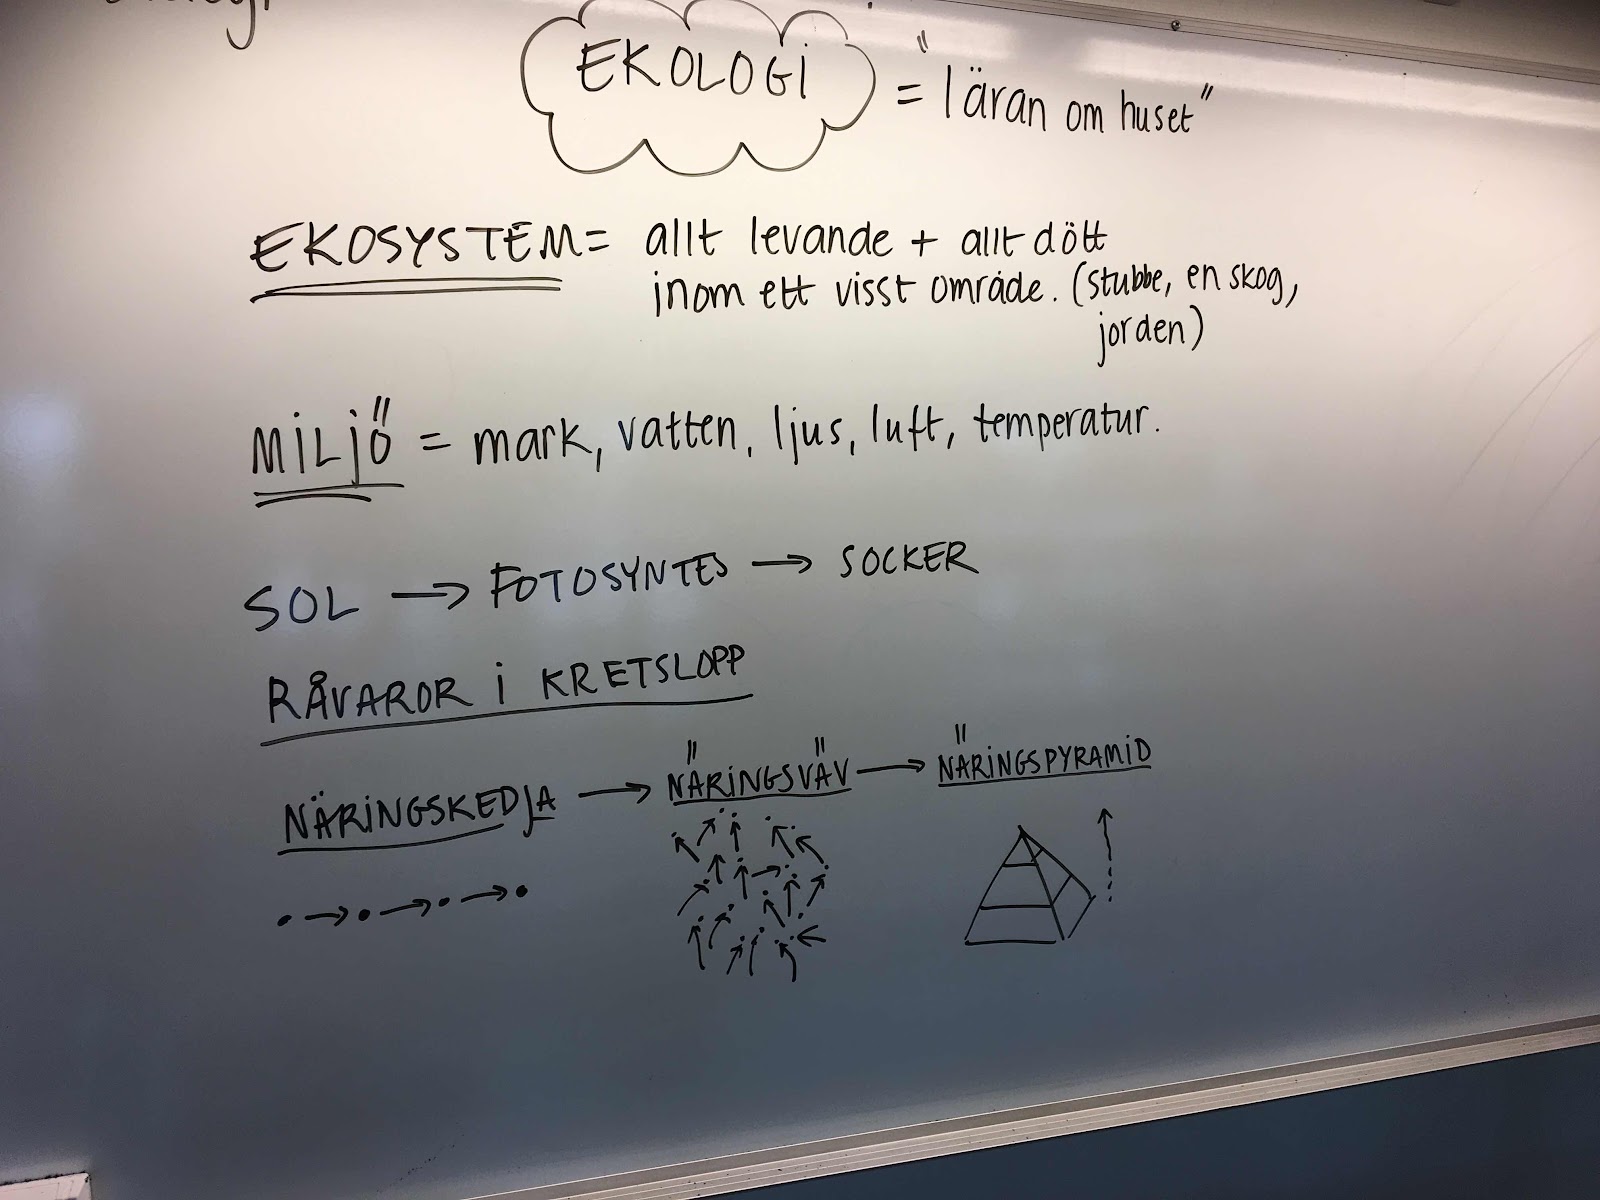 EKOLOGI = "läran om huset"
EKOSYSTEM = allt levande + allt dött
inom ett visst område. (stubbe, en skog,
jorden)
MILJÖ = mark, vatten, ljus, luft, temperatur.
SOL → FOTOSYNTES → SOCKER
RÅVAROR i KRETSLOPP
NÄRINGSKEDJA → NÄRINGSVÄV → NÄRINGSPYRAMID